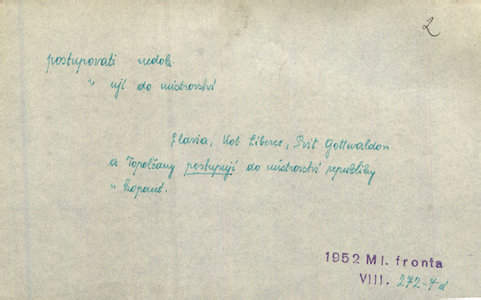 2
postupovati nedok.
" ují do mistrovství
Slavia, Kol Liberec, Svit Gottwaldov
a Topolčany postupují do mistrovství republiky
v kopané.
1952 Ml. fronta
VIII. 272-7-d